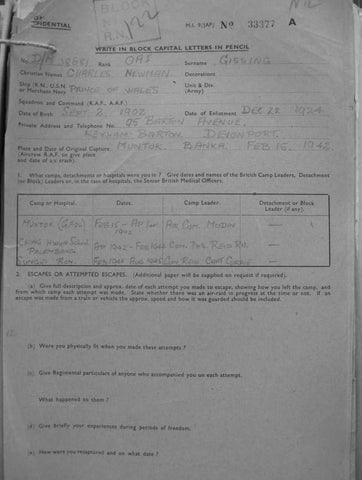 TOP
CONFIDENTIAL
BLOCK
M.I. 9/JAP/ No 33377 A
WRITE IN BLOCK CAPITAL LETTERS IN PENCIL
No. D/JX Rank OA1 Surname GISSING
Christian Names CHARLES NEWMAN Decorations
Ship (R.N., U.S.N. or Merchant Navy) PRINCE OF WALES Unit & Div. (Army)
Squadron and Command (R.A.F., A.A.F.)
Date of Birth SEPT 2 1902 Date of Enlistment DEC 22 1924
Private Address and Telephone No. 95 AVENUE.
BARTON. DEVONPORT.
Place and Date of Original Capture. MUNTOK. BANKA. FEB 15. 1942.
(Aircrew R.A.F. to give place
and date of a/c crash).
1. What camps, detachments or hospitals were you in? Give dates and names of the British Camp Leaders, Detachment
(or Block) Leaders or, in the case of hospitals, the Senior British Medical Officers.
Camp or Hospital. Dates. Camp Leader. Detachment or Block Leader (if any).
MUNTOK (GAOL) FEB 15 - AP 1942 AIR COM. MODIN —
HIGH SCHOOL PALEMBANG AP 1942 - FEB 1944 COM. REID RN. —
SUNGEI RON FEB 1944 AUG 1945 —
2. ESCAPES OR ATTEMPTED ESCAPES. (Additional paper will be supplied on request if required).
(a) Give full description and approx. date of each attempt you made to escape, showing how you left the camp, and
from which camp each attempt was made. State whether there was an air-raid in progress at the time or not. If an
escape was made from a train or vehicle the approx. speed and how it was guarded should be included.
(b) Were you physically fit when you made these attempts?
(c) Give Regimental particulars of anyone who accompanied you on each attempt.
What happened to them?
(d) Give briefly your experiences during periods of freedom.
(e) How were you recaptured and on what date?